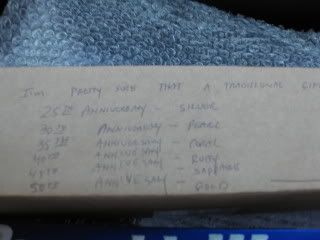 Jim PRETTY SURE THAT A TRADITIONAL GIF
25TH ANNIVERSARY - SILVER
30TH ANNIVERSARY - PEARL
35TH ANNIVERSARY - CORAL
40TH ANNIVERSARY - RUBY
45TH ANNIVERSARY - SAPPHIRE
50TH ANNIVERSARY - GOLD